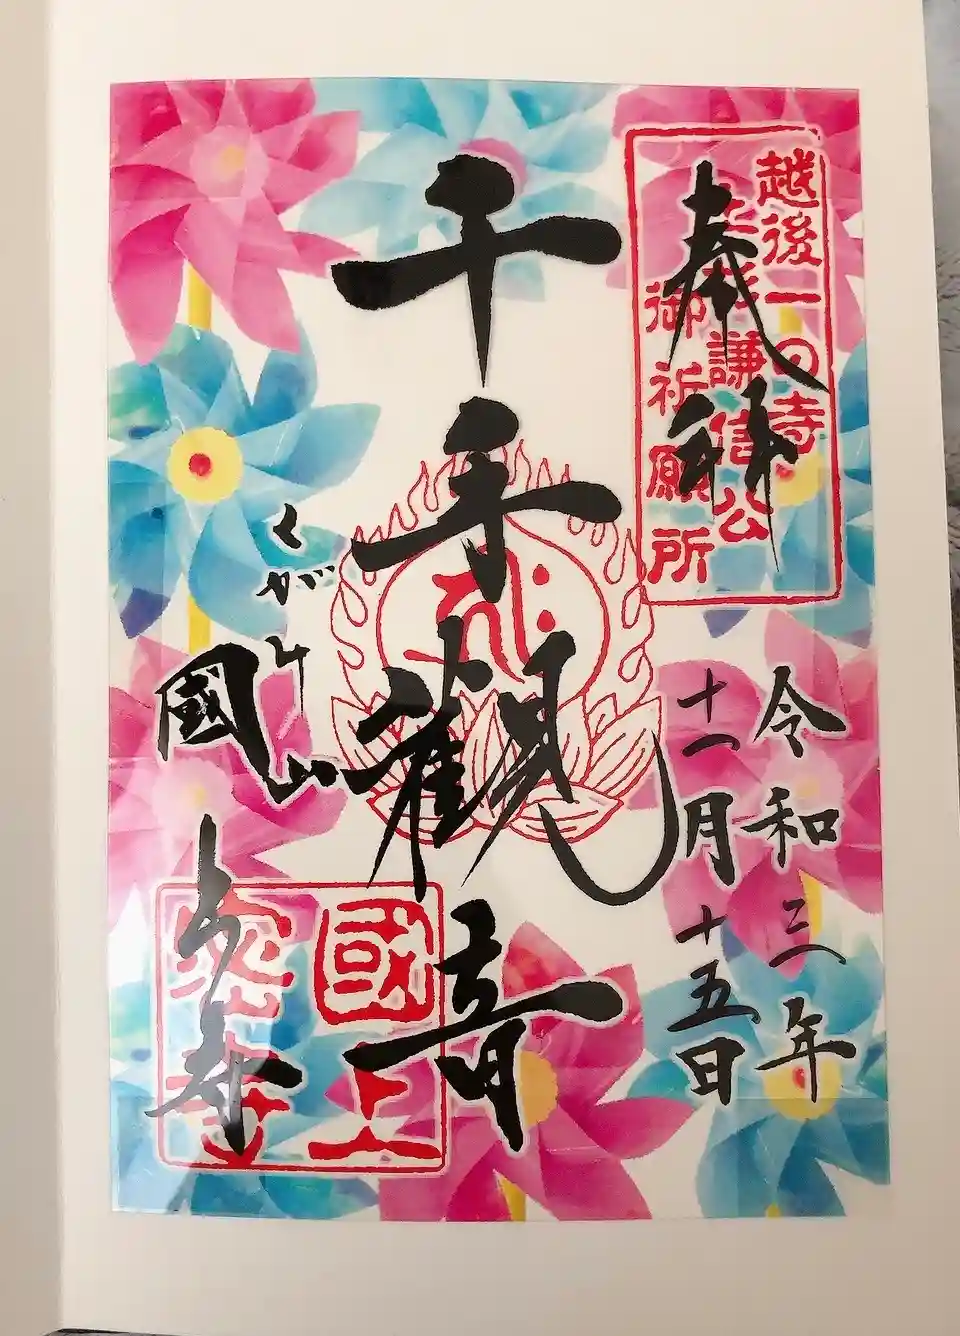 越後一の寺
上杉謙信公
御祈願所
奉拝
令和三年
十一月十五日
千手觀音
くがミ山
國上寺
國上